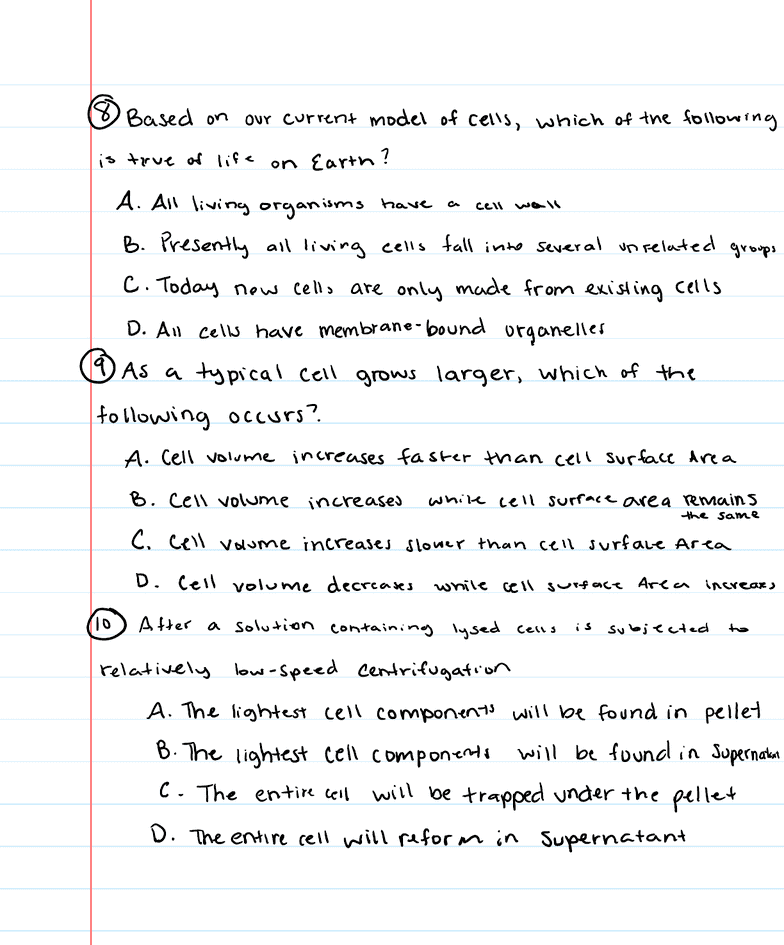 8 Based on our current model of cells, which of the following
is true of life on Earth?
A. All living organisms have a cell wall
B. Presently all living cells fall into several unrelated groups
C. Today new cells are only made from existing cells
D. All cells have membrane-bound organelles
9 As a typical cell grows larger, which of the
following occurs?
A. Cell volume increases faster than cell surface Area
B. Cell volume increases while cell surface area remains
the same
C. Cell volume increases slower than cell surface Area
D. Cell volume decreases while cell surface Area increases
10 After a solution containing lysed cells is subjected to
relatively low-speed centrifugation
A. The lightest cell components will be found in pellet
B. The lightest cell components will be found in Supernatant
C. The entire cell will be trapped under the pellet
D. The entire cell will reform in Supernatant